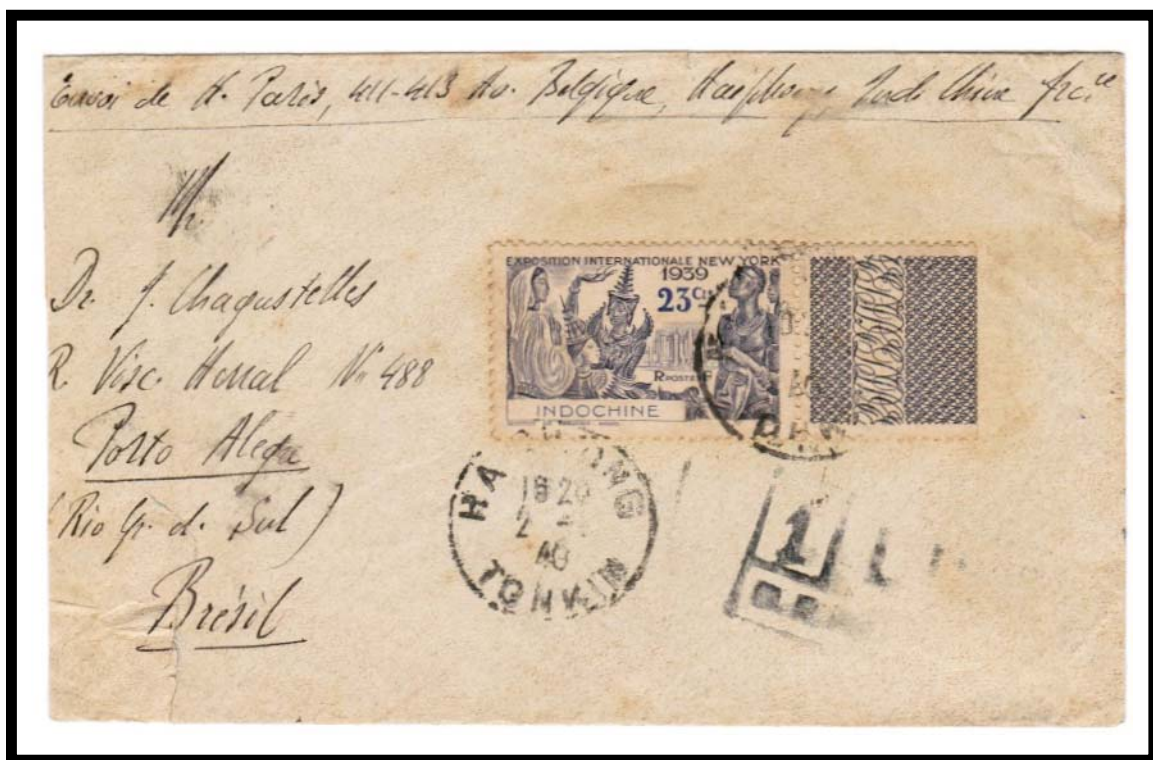 Envoi de H. Paris, 411-413 Av. Belgique, Haiphong, Indo Chine frçse
Mr.
Dr. J. Chagastelles
R. Visc. Herval Nº 488
Porto Alegre
(Rio Gr. d. Sul)
Brésil
EXPOSITION INTERNATIONALE NEW YORK
1939
23
POSTES
INDOCHINE
18 20
2
40
TONKIN
1